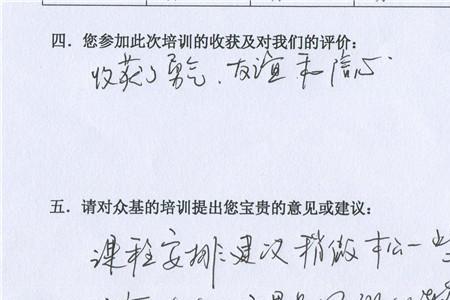 四．您参加此次培训的收获及对我们的评价：
收获了勇气、友谊和信心
五．请对众基的培训提出您宝贵的意见或建议：
课程安排建议稍微松一些